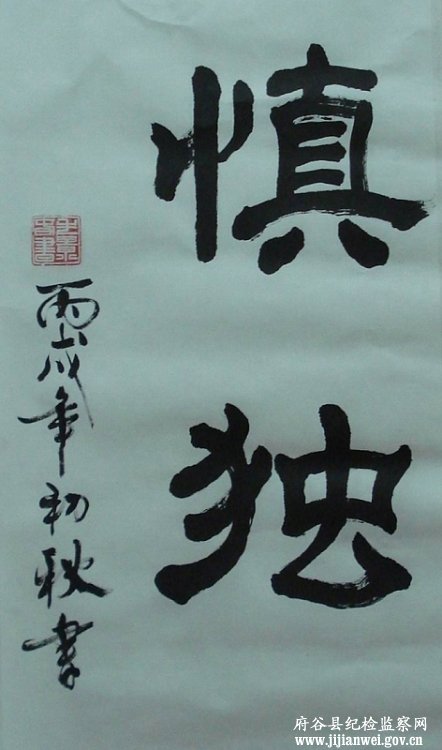 慎独
丙戌年初秋书
府谷县纪检监察网
www.jijianwei.gov.cn